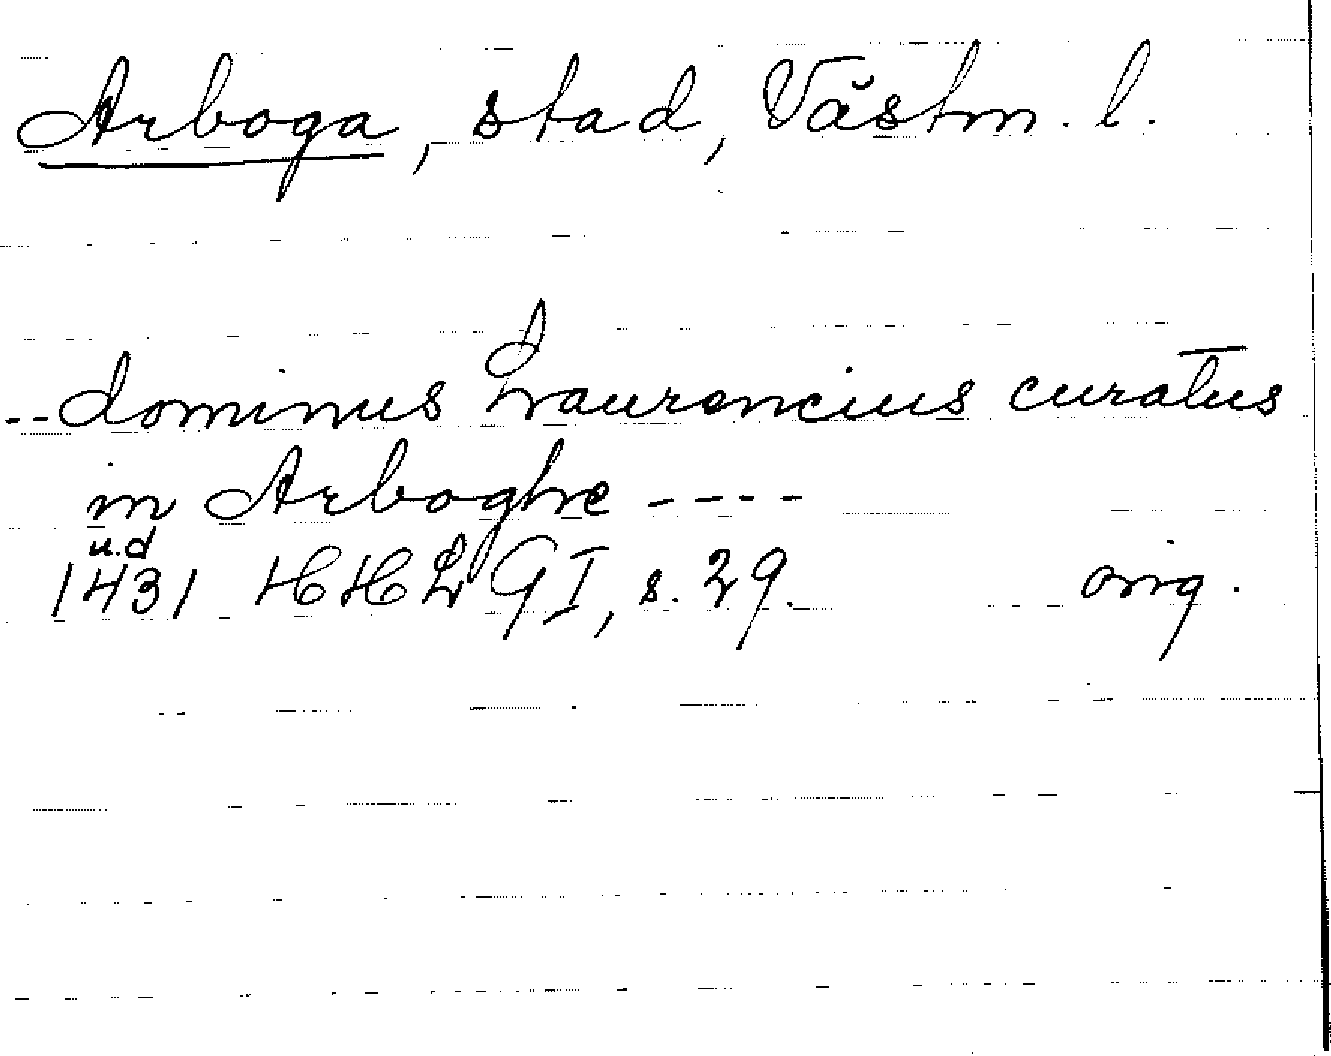 Arboga, stad, Västm. l.
-- dominus Laurencius curatus
in Arboghe ----
u.d
1431 HHLGI, s. 29. orig.